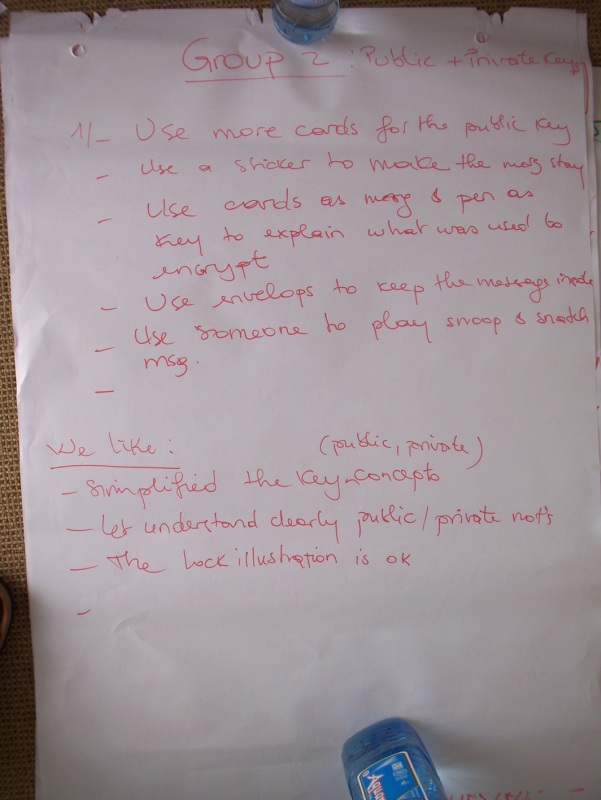 Group 2 : Public + Private Keys
1/ - Use more cards for the public key
- Use a sticker to make the msg stay
- Use cards as msg & pen as
key to explain what was used to
encrypt
- Use envelops to keep the message inside
- Use someone to play snoop & snatch
msg.
-
We like : (public, private)
- Simplified the key-concepts
- Let understand clearly public/private
- The lock illustration is ok
-